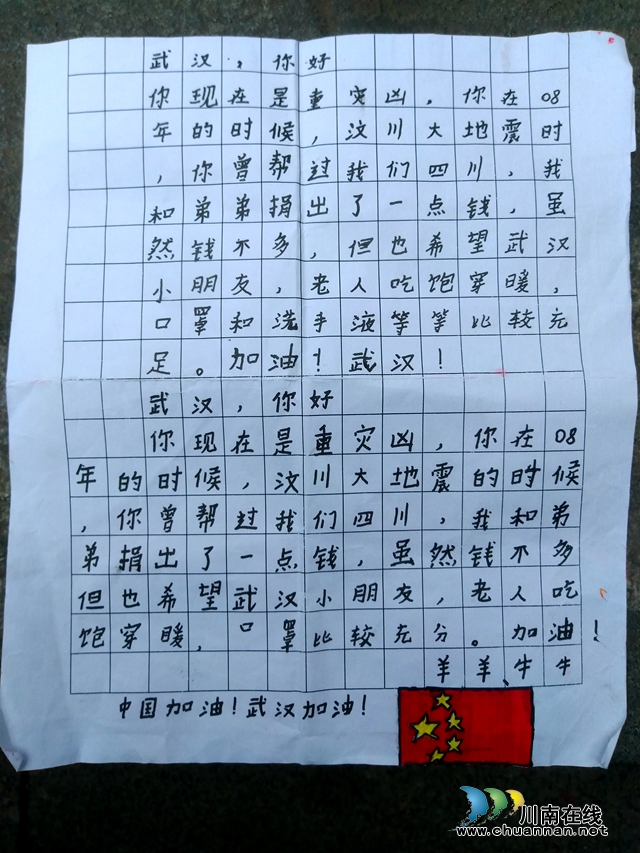 武汉，你好
你现在是重灾凶，你在08
年的时候，汶川大地震时
，你曾帮过我们四川，我
和弟弟捐出了一点钱，虽
然钱不多，但也希望武汉
小朋友，老人吃饱穿暖，
口罩和洗手液等等比较充
足。加油！武汉！
武汉，你好
你现在是重灾凶，你在08
年的时候，汶川大地震的时候
，你曾帮过我们四川，我和弟
弟捐出了一点钱，虽然钱不多
但也希望武汉小朋友，老人吃
饱穿暖，口罩比较充分。加油！
羊羊、牛牛
中国加油！武汉加油！
川南在线
www.chuannan.net